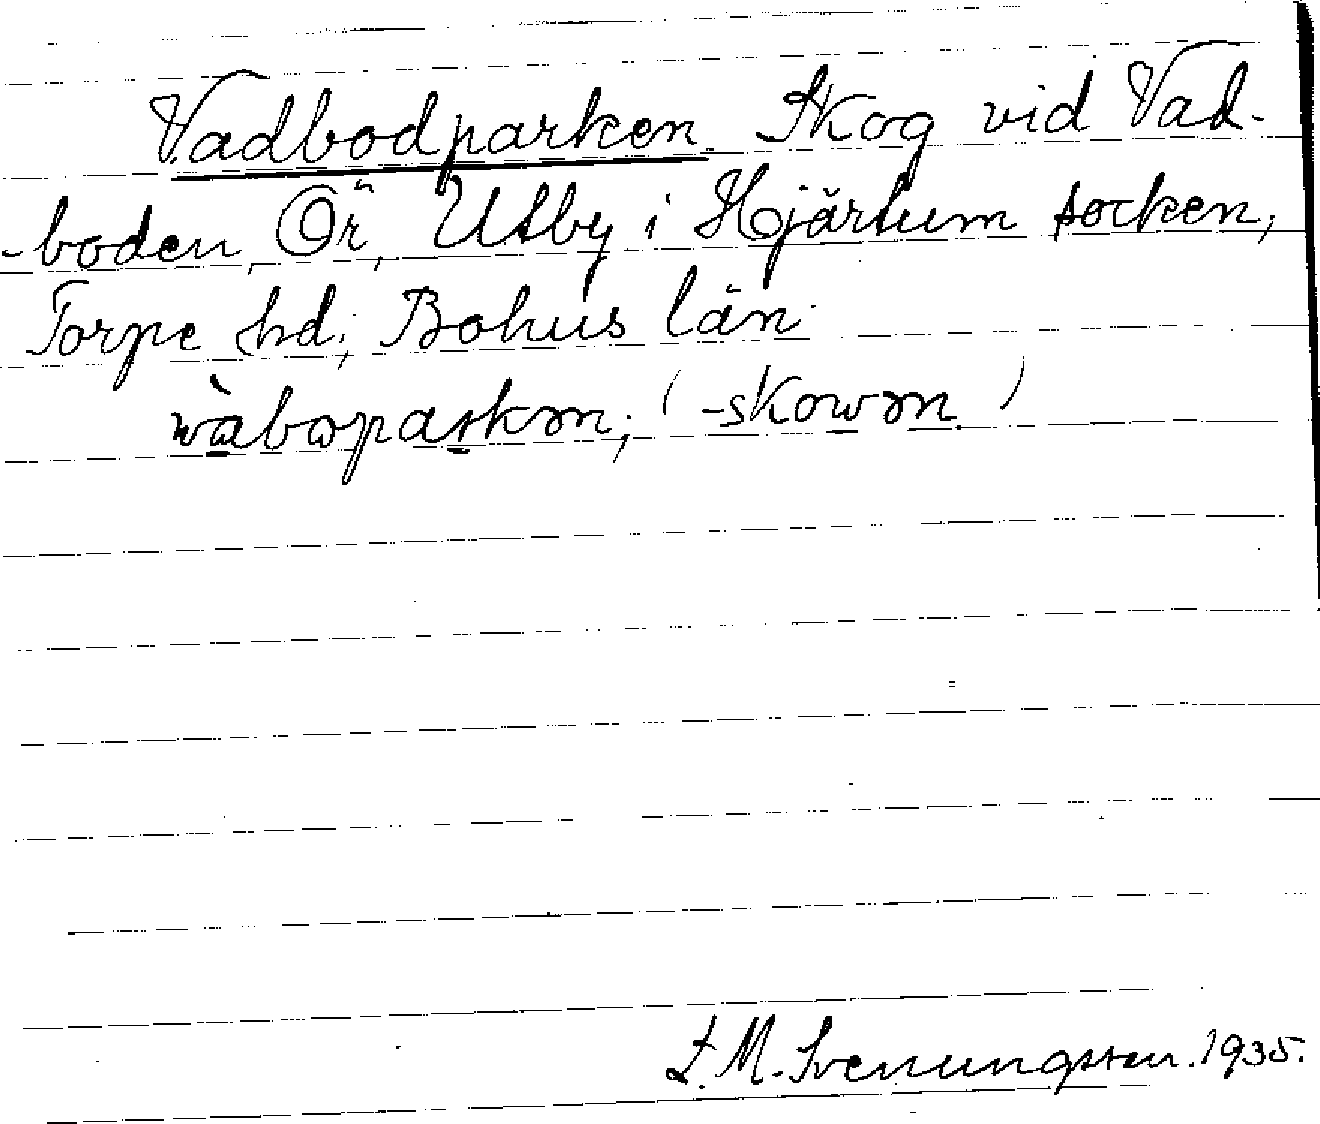 Vadbodparken. Skog vid Vad-
-boden, Ör, Utby i Hjärtum socken,
Torpe hd; Bohus län.
wàbωparkən; (-skowən)
L. M. Svenungsson. 1935.